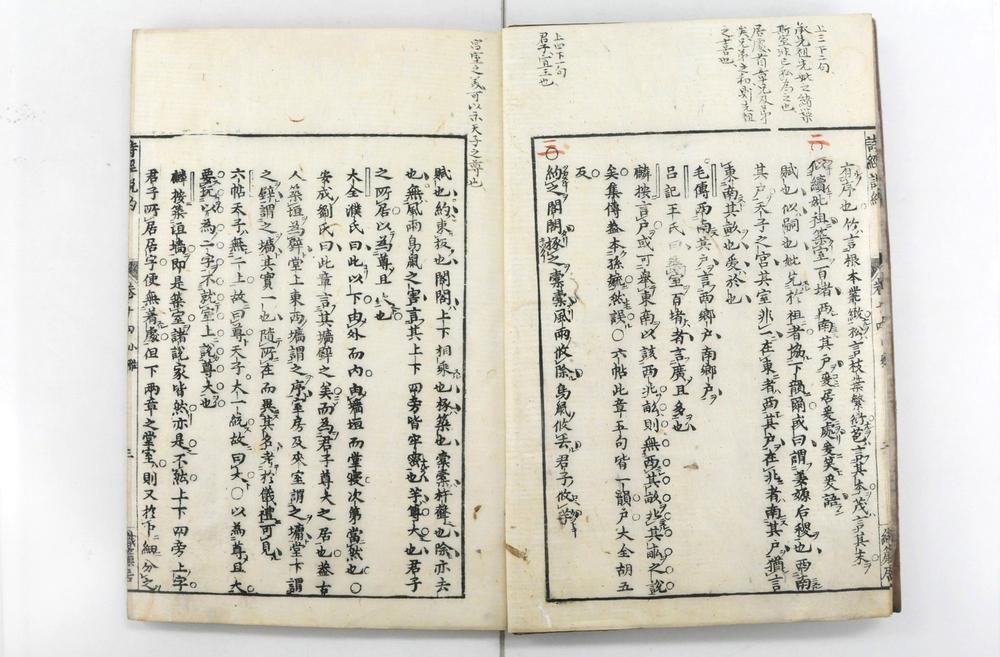 上三下二句
承先祖先妣之緒築
斯室非己私為之也
之喜也
上四下一句
君子宜主也
有序也竹言根本業緻松言枝葉繁衍苞言其本茂言其末
二
○似續妣祖築室百堵西南其戶爰居爰處爰笑爰語
賦也似嗣也妣先於祖者協下韻爾或曰謂姜嫄后稷也西南
其戶天子之宮其室非一在東者西其戶在北者南其戶猶言
東南其畝也爰於也
毛傳西南其戶言西鄉戶南鄉戶
呂記王氏曰築室百堵者言廣且多也
麟按言戶或可兼東南以該西北畝則無西其畝北其畝之說
矣集傳蓋本孫毓然誤○六帖此章五句皆一韻戶大全胡五
反
三
○約之閣閣椓之橐橐風雨攸除鳥鼠攸去君子攸芋
宮室之美可以示天子之尊也
賦也約束板也閣閣上下相乘也椓築也橐橐杵聲也除亦去
也無風雨鳥鼠之害言其上下四旁皆牢密也芋尊大也君子
之所居以為尊且大也
大全濮氏曰此以下由外而內由牆垣而堂寢次第當然也○
安成劉氏曰此章言其墻壁之美而為君子尊大之居也蓋古
人築垣為壁堂上東西墻謂之序室房及夾室謂之墉堂下謂
之壁謂之墻其實一也隨所在而異其名考於儀禮可見
六帖天子無二上故曰尊天子大一統故曰大○以為尊且大
要玩以為二字不就室上說尊大也
麟按築垣墻即是築室諸說家皆然亦是不然上下四旁上字
君子所居居字便無著處但下兩章之堂室則又於中細分之
詩經說約
卷十四小雅
三
織簾居